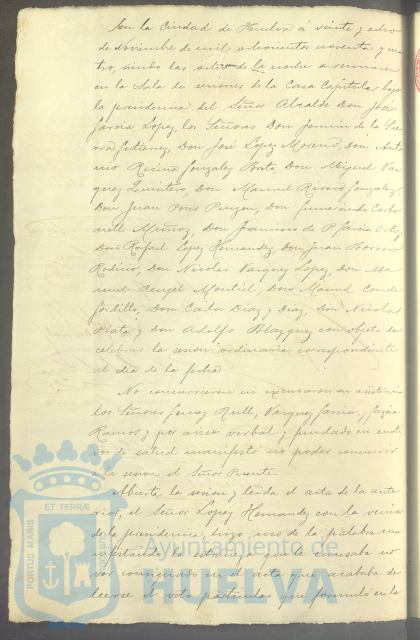 En la Ciudad de Huelva á veinte y ocho
de Noviembre de mil ochocientos noventa y cua
tro, siendo las siete de la noche se reunieron
en la Sala de sesiones de la Casa Capitular bajo
la presidencia del Señor Alcalde Don José
Garcia Lopez, los Señores Don Fermin de la Sie
rra Gutierrez, Don José Lopez Moreno, Don Anto
nio Gonzalez Don Miguel Vaz
quez Quintero, Don Manuel Rivero Gonzalez,
Don Juan Pons Don Gumersindo Carbo
nell Muñoz, Don Francisco de P. Garcia Ortiz
Don Rafael Lopez Hernandez, Don Juan Borrero
Don Nicolas Vazquez Lopez, Don Ma
nuel Rengel Montiel, Don Manuel Conde
Gordillo, Don Carlos Diaz y Diaz, Don Nicolas
Plata y Don Adolfo Blazquez con objeto de
celebrar la sesion ordinaria correspondiente
al dia de la fecha
No concurrieron ni excusaron su asistencia
los Señores Vazquez Garcia,
Ramos y por aviso verbal y fundado en moti
vos de salud manifestó no poder concurrir
á la sesion el Señor Puente.
Abierta la sesion y leida el acta de la ante
rior, el Señor Lopez Hernandez con la venia
de la presidencia, hizo uso de la palabra ma
nifestando la estrañeza que le causaba no
ver consignado en el acta que acababa de
leerse el voto particular que formuló en la
PORTUS MARIS ET TERRÆ CUSTODIA
Ayuntamiento de
HUELVA